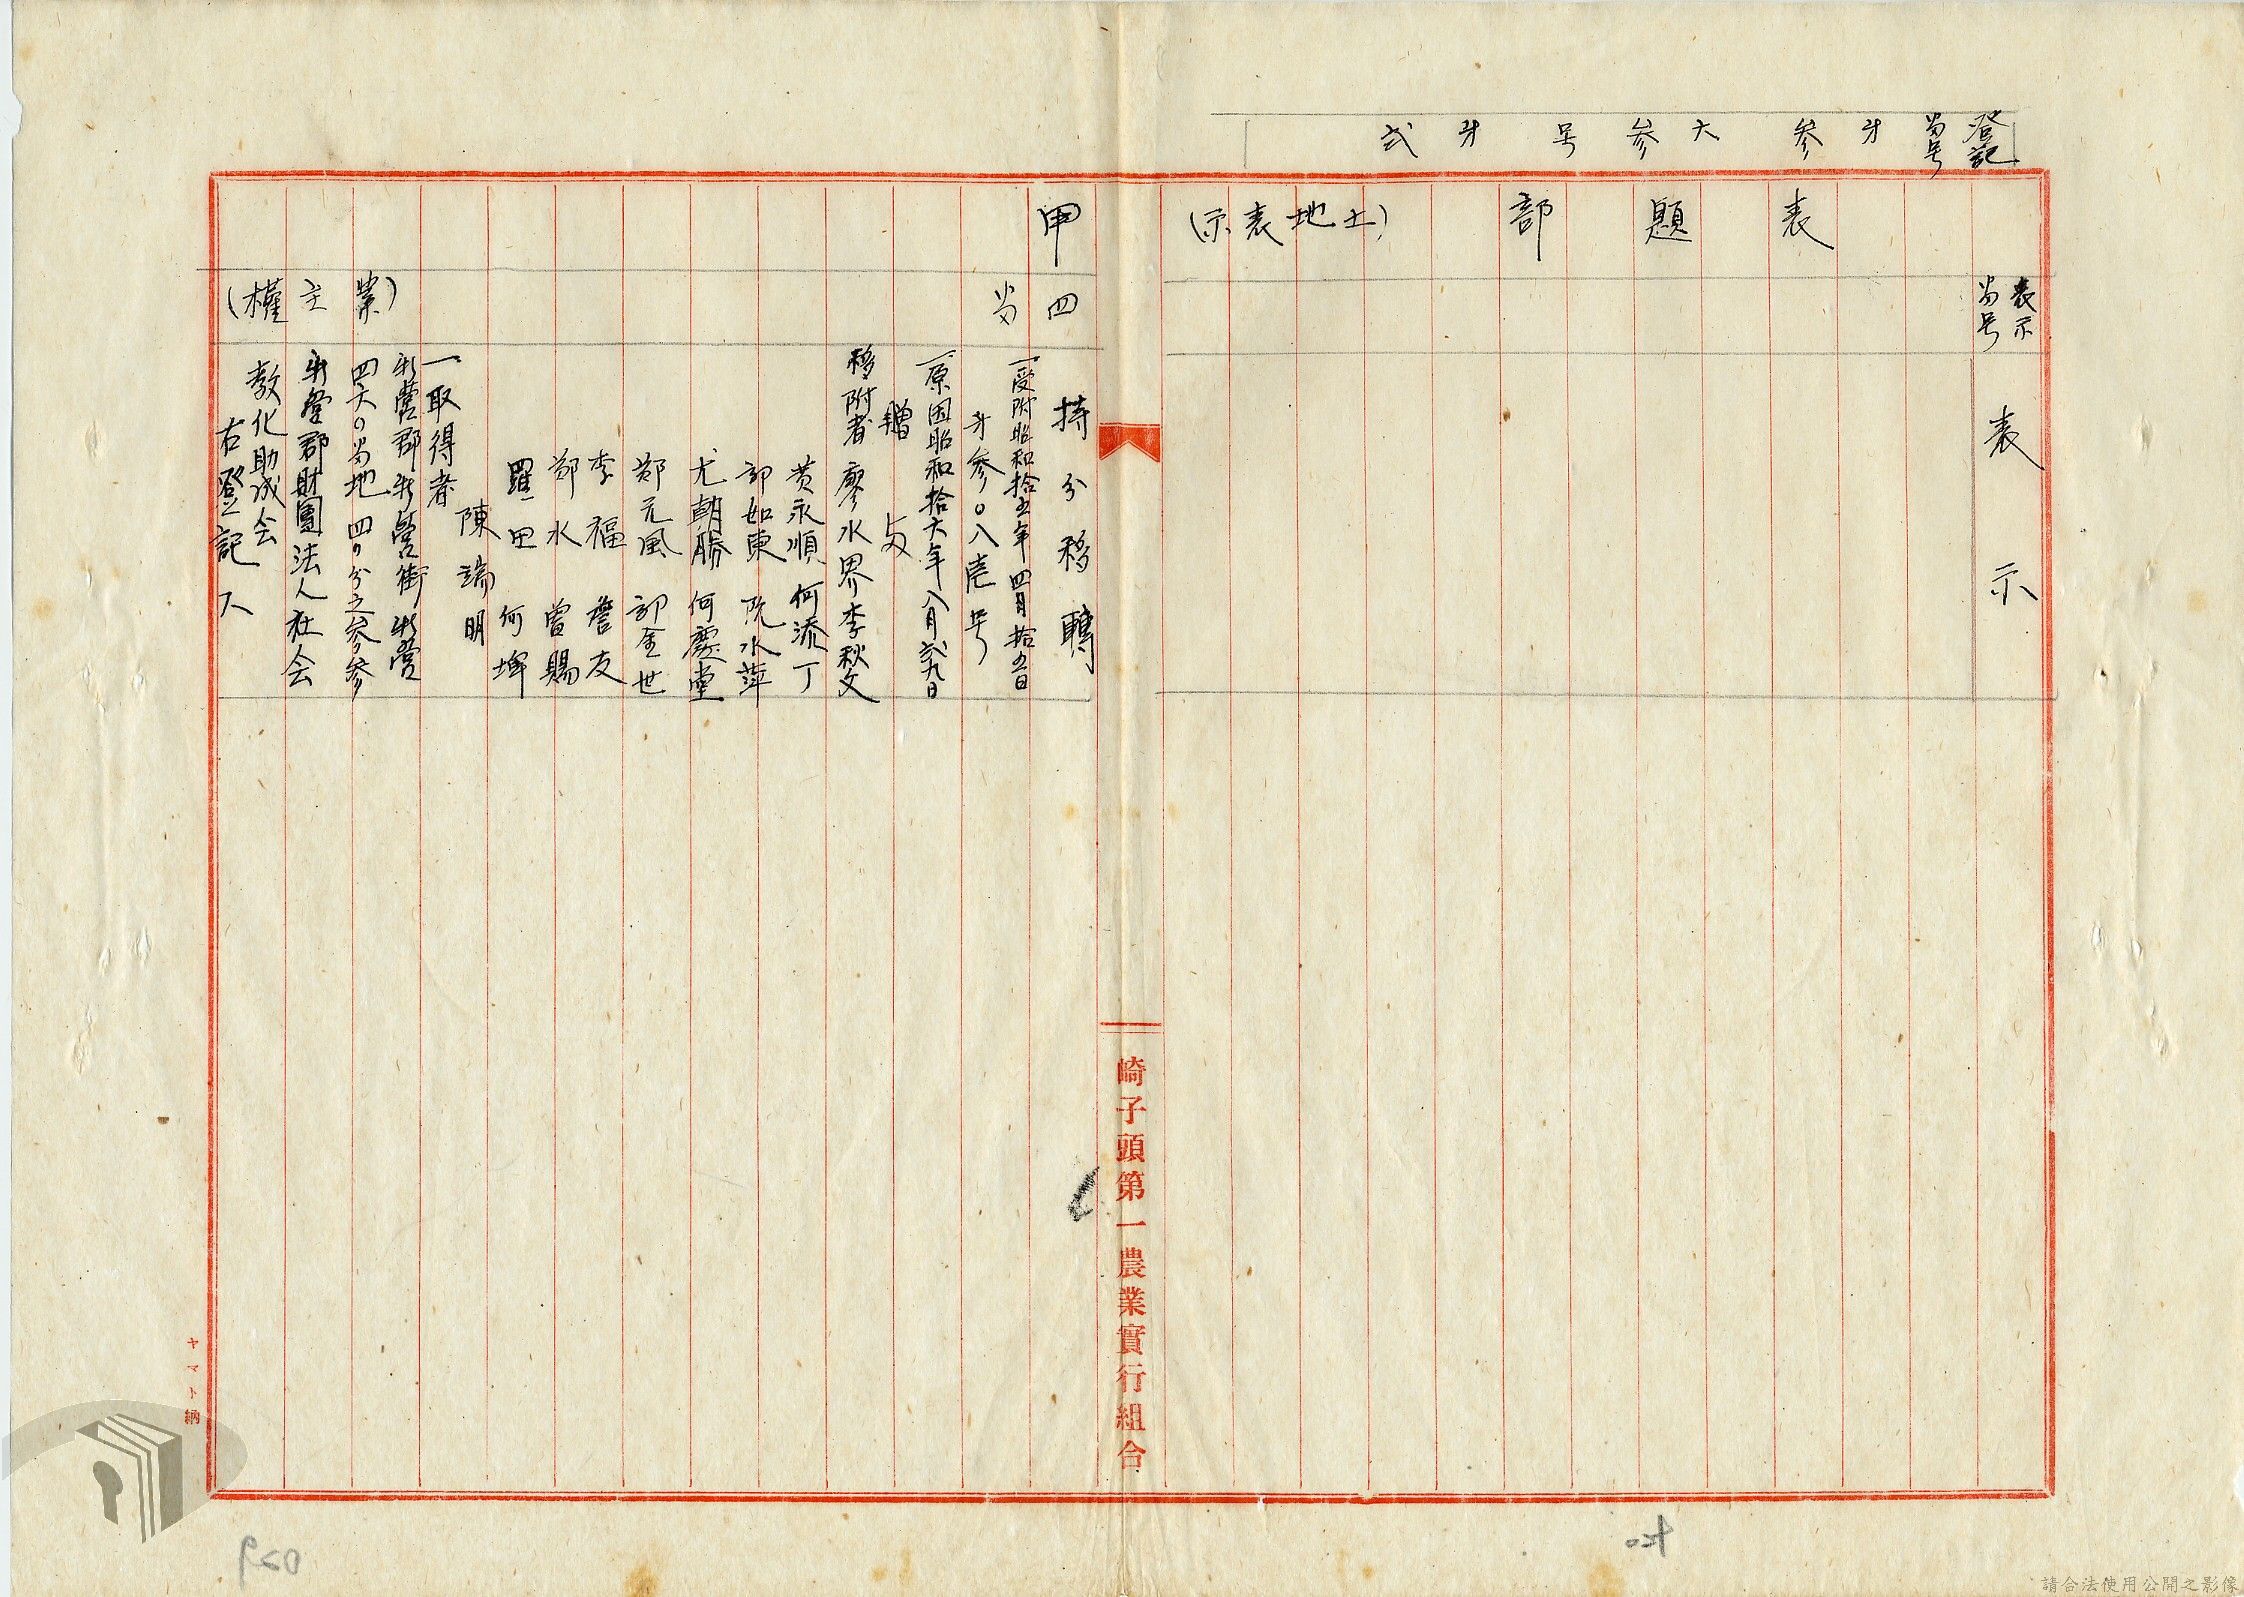 登記
畨号
才参大参号才弍
表題部
(土地表示)
表示
畨号
表示
甲
四
畨
持分移轉
一受附昭和拾五年四月拾五日
才参〇八壱号
一原因昭和拾六年八月弍九日
贈与
移附者 廖水界 李秋文
黄永順 何添丁
郭如東 阮水萍
尤朝勝 何慶堂
郑元風 郭金世
李福 詹友
郑水 曾賜
羅田 何墿
陳瑞明
一取得者
新營郡新營街新營
四六〇畨地 四〇分之参参
新營郡財團法人社会
教化助成会
右登記ス
(業主權)
崎子頭第一農業實行組合
ヤマト納
請合法使用公開之影像